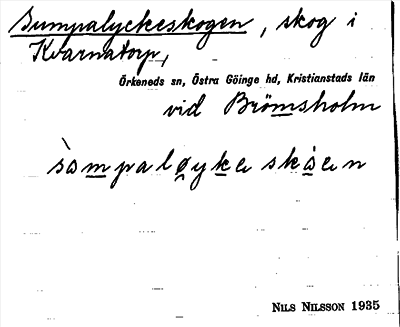 Sumpalyckeskogen, skog i
Kvarnatorp,
Örkeneds sn, Östra Göinge hd, Kristianstads län
vid Brömsholm
sàmpaløyke skåen
NILS NILSSON 1935